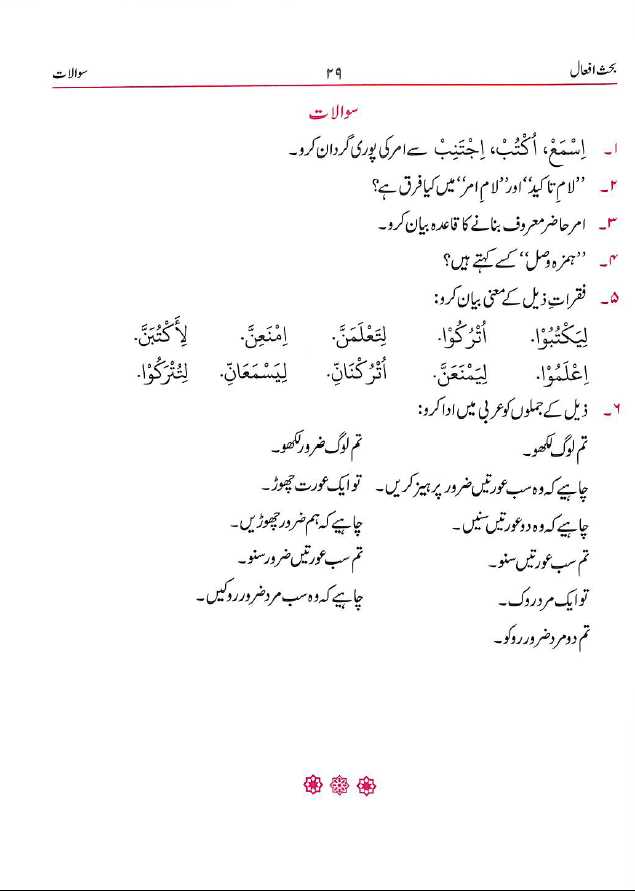 بحث افعال ۲۹ سوالات
سوالات
۱۔ اِسْمَعْ، اُكْتُبْ، اِجْتَنِبْ سے امر کی پوری گردان کرو۔
۲۔ ’’لامِ تاکید‘‘ اور ’’لامِ امر‘‘ میں کیا فرق ہے؟
۳۔ امر حاضر معروف بنانے کا قاعدہ بیان کرو۔
۴۔ ’’ہمزہ وصل‘‘ کسے کہتے ہیں؟
۵۔ فقراتِ ذیل کے معنی بیان کرو:
لِيَكْتُبُوْا. اُتْرُكُوْا. لِتَعْلَمَنَّ. اِمْنَعِنَّ. لِأَكْتُبَنَّ.
اِعْلَمُوْا. لِيَمْنَعَنَّ. اُتْرُكْنَانِّ. لِيَسْمَعَانِّ. لِتُتْرَكُوْا.
۶۔ ذیل کے جملوں کو عربی میں ادا کرو:
تم لوگ لکھو۔ تم لوگ ضرور لکھو۔
چاہیے کہ وہ سب عورتیں ضرور پرہیز کریں۔ تو ایک عورت چھوڑ۔
چاہیے کہ وہ دو عورتیں سنیں۔ چاہیے کہ ہم ضرور چھوڑیں۔
تم سب عورتیں سنو۔ تم سب عورتیں ضرور سنو۔
تو ایک مرد روک۔ چاہیے کہ وہ سب مرد ضرور روکیں۔
تم دو مرد ضرور روکو۔